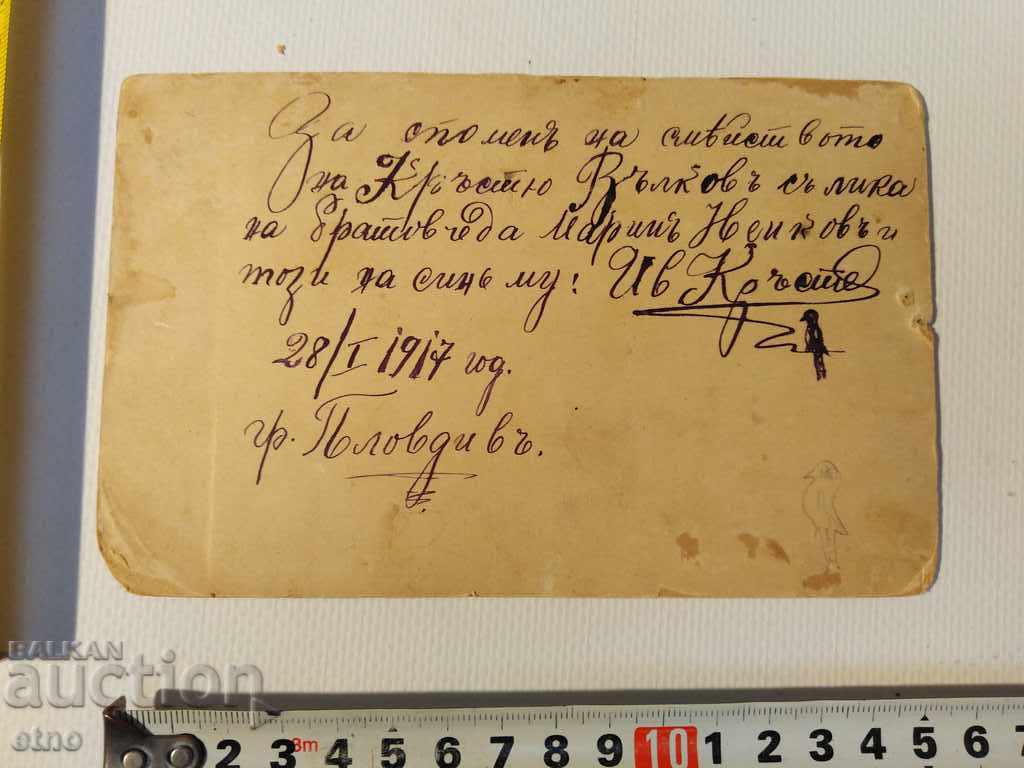 За споменъ на смѣиството
на Кръстю Вълковъ съ лика
на братовчеда Маринъ Недковъ и
този на синъ му: Ив Кръстев
28/I 1917 год.
гр. Пловдивъ.
BALKAN
auction
etno
2 3 3m 4 5 6 7 8 9 10 1 2 3 4 5 6 7